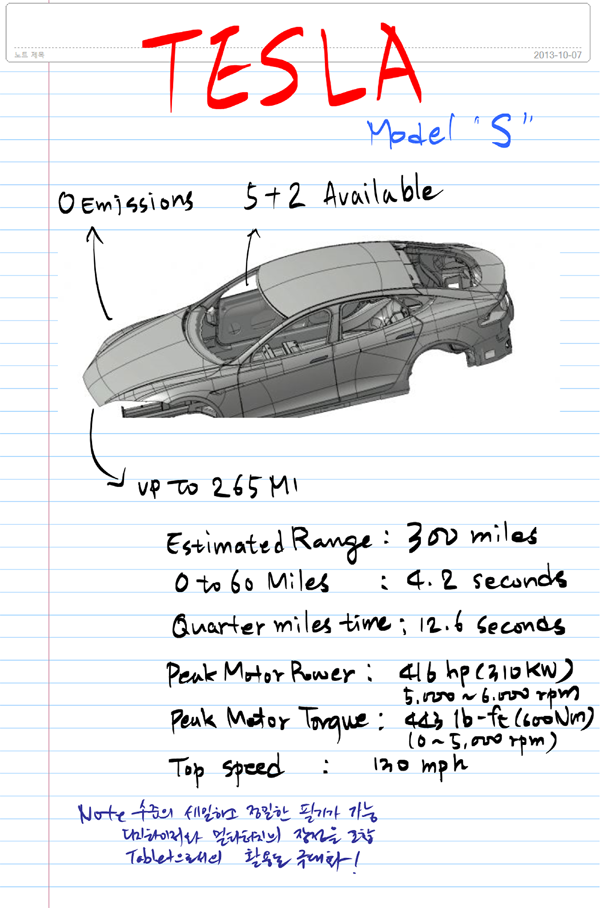 노트 제목
2013-10-07
TESLA
Model "S"
0 Emissions
5+2 Available
UP TO 265 MI
Estimated Range : 300 miles
0 to 60 Miles : 4.2 seconds
Quarter miles time : 12.6 seconds
Peak Motor Power : 416 hp (310 KW)
5,000 ~ 6,000 rpm
Peak Motor Torque : 443 lb-ft (600 Nm)
(0 ~ 5,000 rpm)
Top speed : 130 mph
Note 수준의 세밀하고 정밀한 필기가 가능
디지타이저와 멀티터치의 장점을 조합
Tablet으로서의 활용도 극대화!